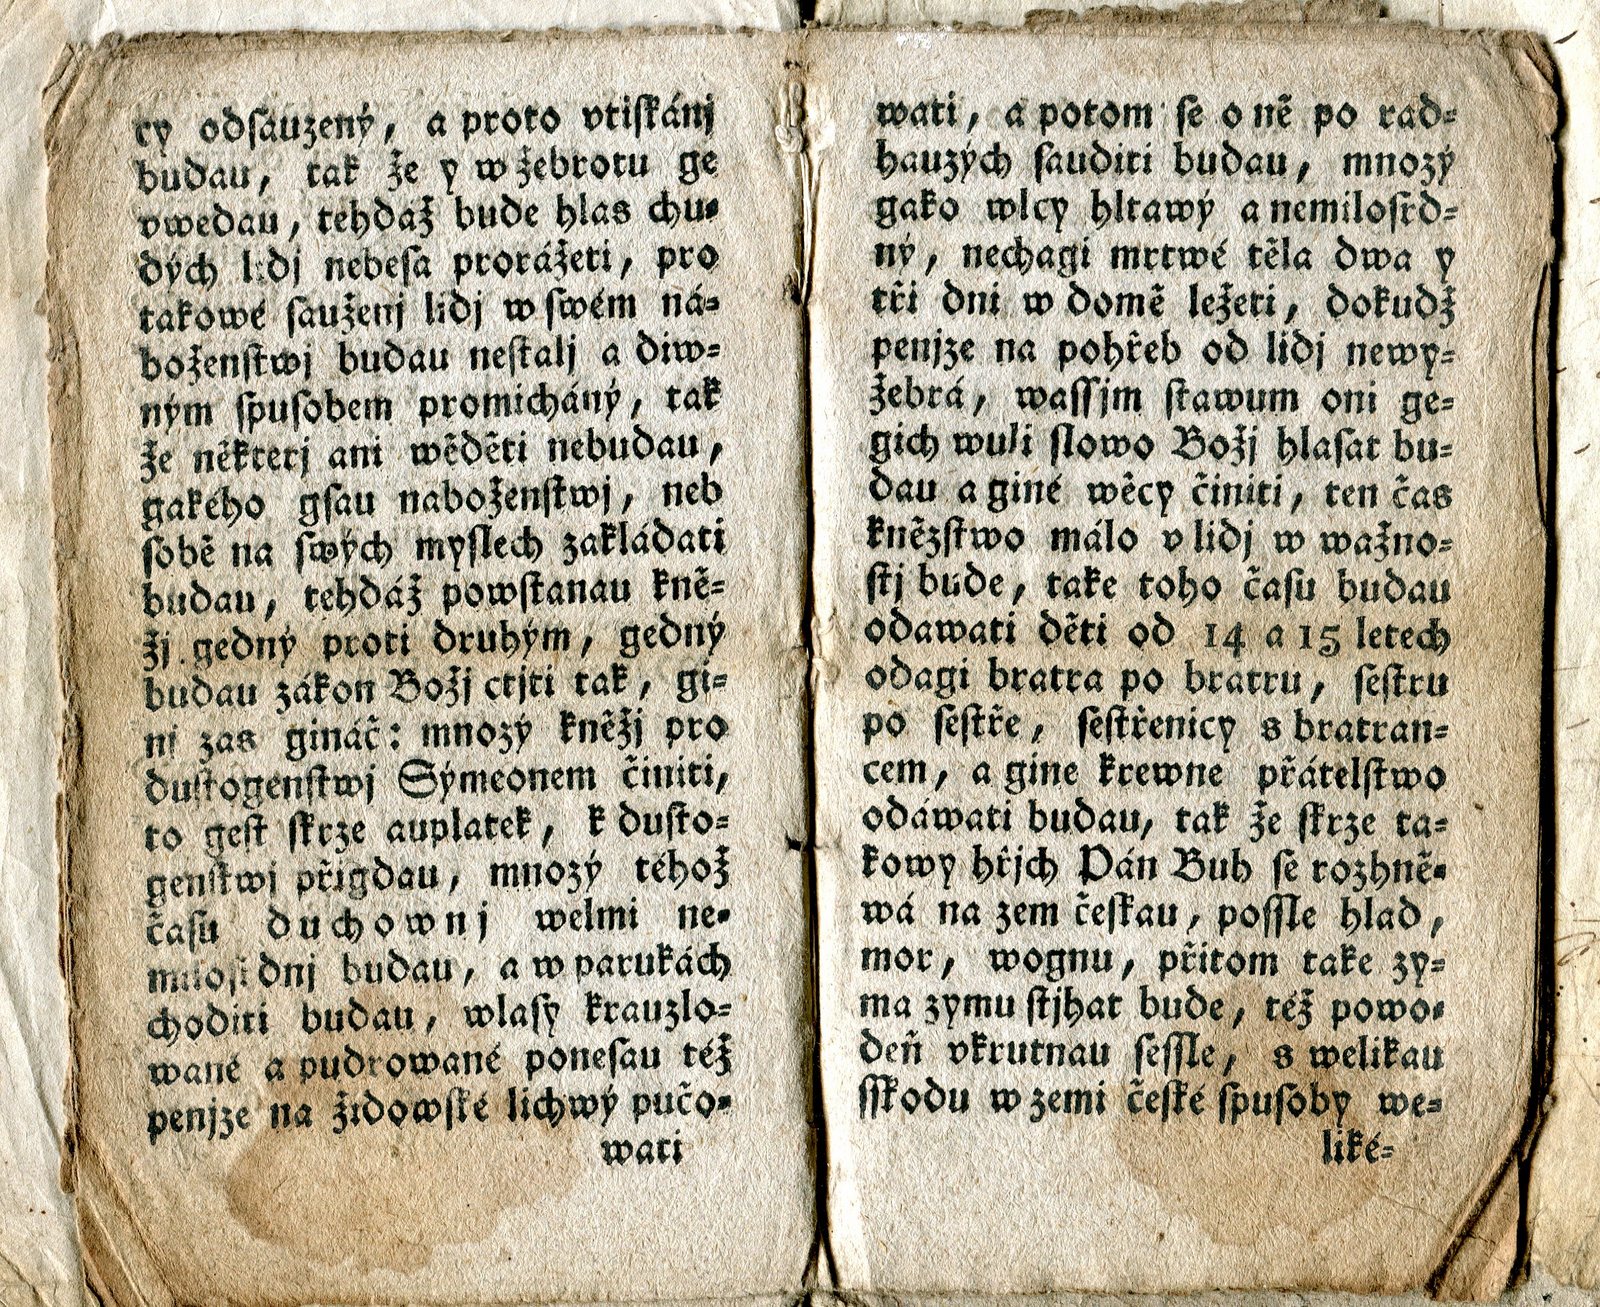 cy odſauzený, a proto vtiſkánj
budau, tak že y w žebrotu ge
vwedau, tehdáž bude hlas chu⸗
dých lidj nebeſa prorážeti, pro
takowé ſauženj lidj w ſwém ná⸗
boženſtwj budau neſtalj a diw⸗
ným ſpuſobem promicháný, tak
že některj ani wěděti nebudau,
gakého gſau naboženſtwj, neb
ſobě na ſwých myſlech zakládati
budau, tehdáž powſtanau kně⸗
žj gedný proti druhým, gedný
budau zákon Božj ctjti tak, gi⸗
nj zas gináč: mnozý kněžj pro
duſtogenſtwj Sýmeonem činiti,
to geſt ſkrze auplatek, k duſto⸗
genſtwj přigdau, mnozý téhož
čaſu duchownj welmi ne⸗
miloſrdnj budau, a w parukách
choditi budau, wlaſy krauzlo⸗
wané a pudrowané ponesau též
penjze na židowſké lichwý pučo⸗
wati
wati, a potom ſe o ně po rad⸗
hauzých ſauditi budau, mnozý
gako wlcy hltawý a nemiloſrd⸗
ný, nechagi mrtwé těla dwa y
tři dni w domě ležeti, dokudž
penjze na pohřeb od lidj newy⸗
žebrá, waſſjm ſtawum oni ge⸗
gich wuli ſlowo Božj hlaſat bu⸗
dau a giné wěcy činiti, ten čas
kněžſtwo málo v lidj w wažno⸗
ſtj bude, take toho čaſu budau
odawati děti od 14 a 15 letech
odagi bratra po bratru, ſeſtru
po ſeſtře, ſeſtřenicy s bratran⸗
cem, a gine krewne přátelſtwo
odáwati budau, tak že ſkrze ta⸗
kowy hřjch Pán Buh ſe rozhně⸗
wá na zem českau, poſſle hlad,
mor, wognu, přitom take zy⸗
ma zymu ſtjhat bude, též powo⸗
deň vkrutnau ſeſſle, s welikau
ſſkodu w zemi české ſpuſoby we⸗
liké⸗